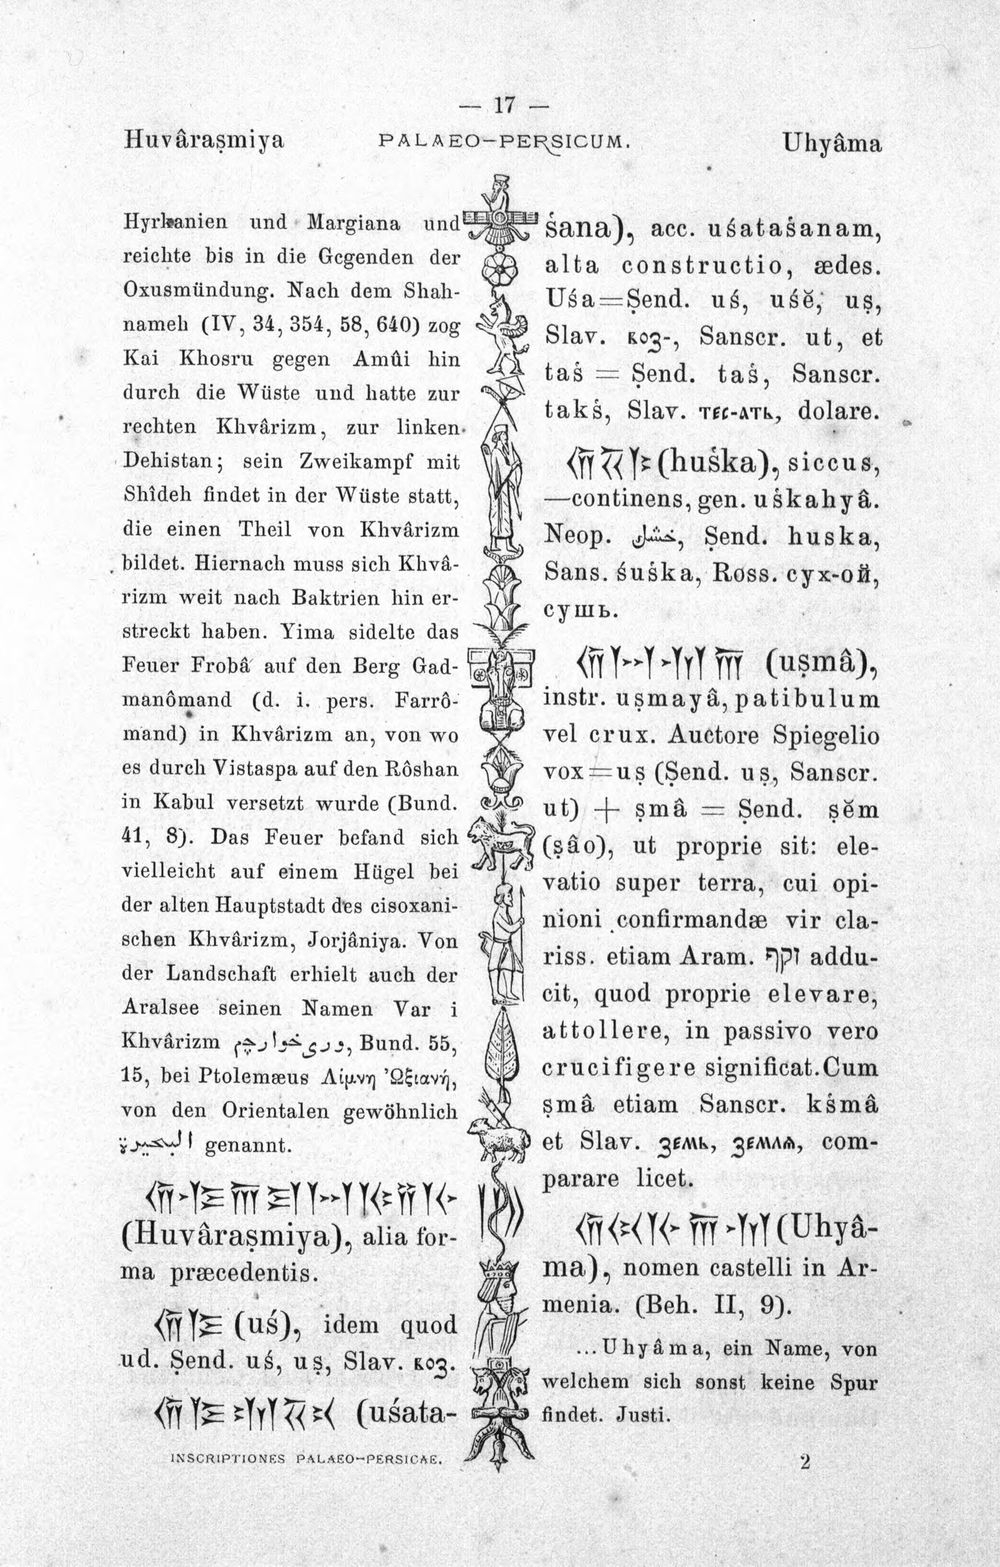 — 17 —
Huvâraşmiya PALAEO-PERSICUM. Uhyâma
Hyrkanien und Margiana und
reichte bis in die Gegenden der
Oxusmündung. Nach dem Shah-
nameh (IV, 34, 354, 58, 640) zog
Kai Khosru gegen Amûi hin
durch die Wüste und hatte zur
rechten Khvârizm, zur linken
Dehistan; sein Zweikampf mit
Shîdeh findet in der Wüste statt,
die einen Theil von Khvârizm
bildet. Hiernach muss sich Khvâ-
rizm weit nach Baktrien hin er-
streckt haben. Yima sidelte das
Feuer Frobâ auf den Berg Gad-
manômand (d. i. pers. Farrô-
mand) in Khvârizm an, von wo
es durch Vistaspa auf den Rôshan
in Kabul versetzt wurde (Bund.
41, 8). Das Feuer befand sich
vielleicht auf einem Hügel bei
der alten Hauptstadt des cisoxani-
schen Khvârizm, Jorjâniya. Von
der Landschaft erhielt auch der
Aralsee seinen Namen Var i
Khvârizm, Bund. 55,
15, bei Ptolemæus Λίμνη Ὠξιανή,
von den Orientalen gewöhnlich
البحيرة genannt.
(Huvâraşmiya), alia for-
ma præcedentis.
(uś), idem quod
ud. Şend. uś, uş, Slav. воз.
(uśata-
śana), acc. uśataśanam,
alta constructio, ædes.
Uśa=Şend. uś, uśĕ, uş,
Slav. воз-, Sanscr. ut, et
taś = Şend. taś, Sanscr.
takś, Slav. тес-ать, dolare.
(huśka), siccus,
—continens, gen. uśkahyâ.
Neop. خشك, Şend. huska,
Sans. śuśka, Ross. сух-ой,
сушь.
(uşmâ),
instr. uşmayâ, patibulum
vel crux. Auctore Spiegelio
vox=uş (Şend. uş, Sanscr.
ut) + şmâ = Şend. şĕm
(şâo), ut proprie sit: ele-
vatio super terra, cui opi-
nioni confirmandæ vir cla-
riss. etiam Aram. זקף addu-
cit, quod proprie elevare,
attollere, in passivo vero
crucifigere significat. Cum
şmâ etiam Sanscr. kśmâ
et Slav. земь, землѧ, com-
parare licet.
(Uhyâ-
ma), nomen castelli in Ar-
menia. (Beh. II, 9).
...Uhyâma, ein Name, von
welchem sich sonst keine Spur
findet. Justi.
INSCRIPTIONES PALAEO-PERSICAE. 2